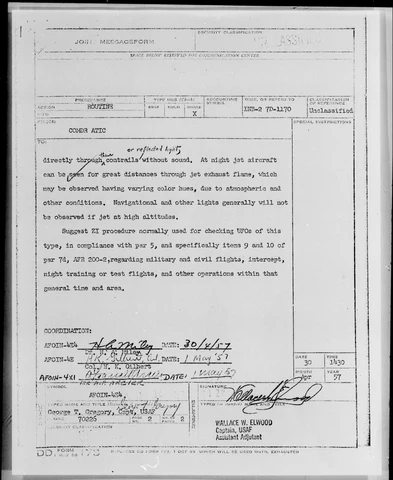 JOINT MESSAGEFORM
SECURITY CLASSIFICATION
SPACE BELOW RESERVED FOR COMMUNICATION CENTER
PRECEDENCE
ACTION ROUTINE
TYPE MSG (Check)
ACCOUNTING SYMBOL
ORIG. OR REFERS TO
CLASSIFICATION OF REFERENCE
X
INS-2 7D-1170
Unclassified
FROM:
SPECIAL INSTRUCTIONS
COMDR ATIC
TO:
or reflected light,
directly through contrails without sound. At night jet aircraft
can be seen for great distances through jet exhaust flame, which
may be observed having varying color hues, due to atmospheric and
other conditions. Navigational and other lights generally will not
be observed if jet at high altitudes.
Suggest ZI procedure normally used for checking UFOs of this
type, in compliance with par 5, and specifically items 9 and 10 of
par 7d, AFR 200-2, regarding military and civil flights, intercept,
night training or test flights, and other operations within that
general time and area.
COORDINATION:
AFOIN-4E4 DATE: 30/4/57
AFOIN-4E DATE: 1 May '57
Col. H. K. Gilbert
AFOIN-4X1 DATE: 1 May 57
DATE 30 TIME 1430
MONTH YEAR 57
SYMBOL
AFOIN-4E4,
SIGNATURE
George T. Gregory, Capt, USAF
70226 2 2
WALLACE W. ELWOOD
Captain, USAF
Assistant Adjutant
DD FORM 173